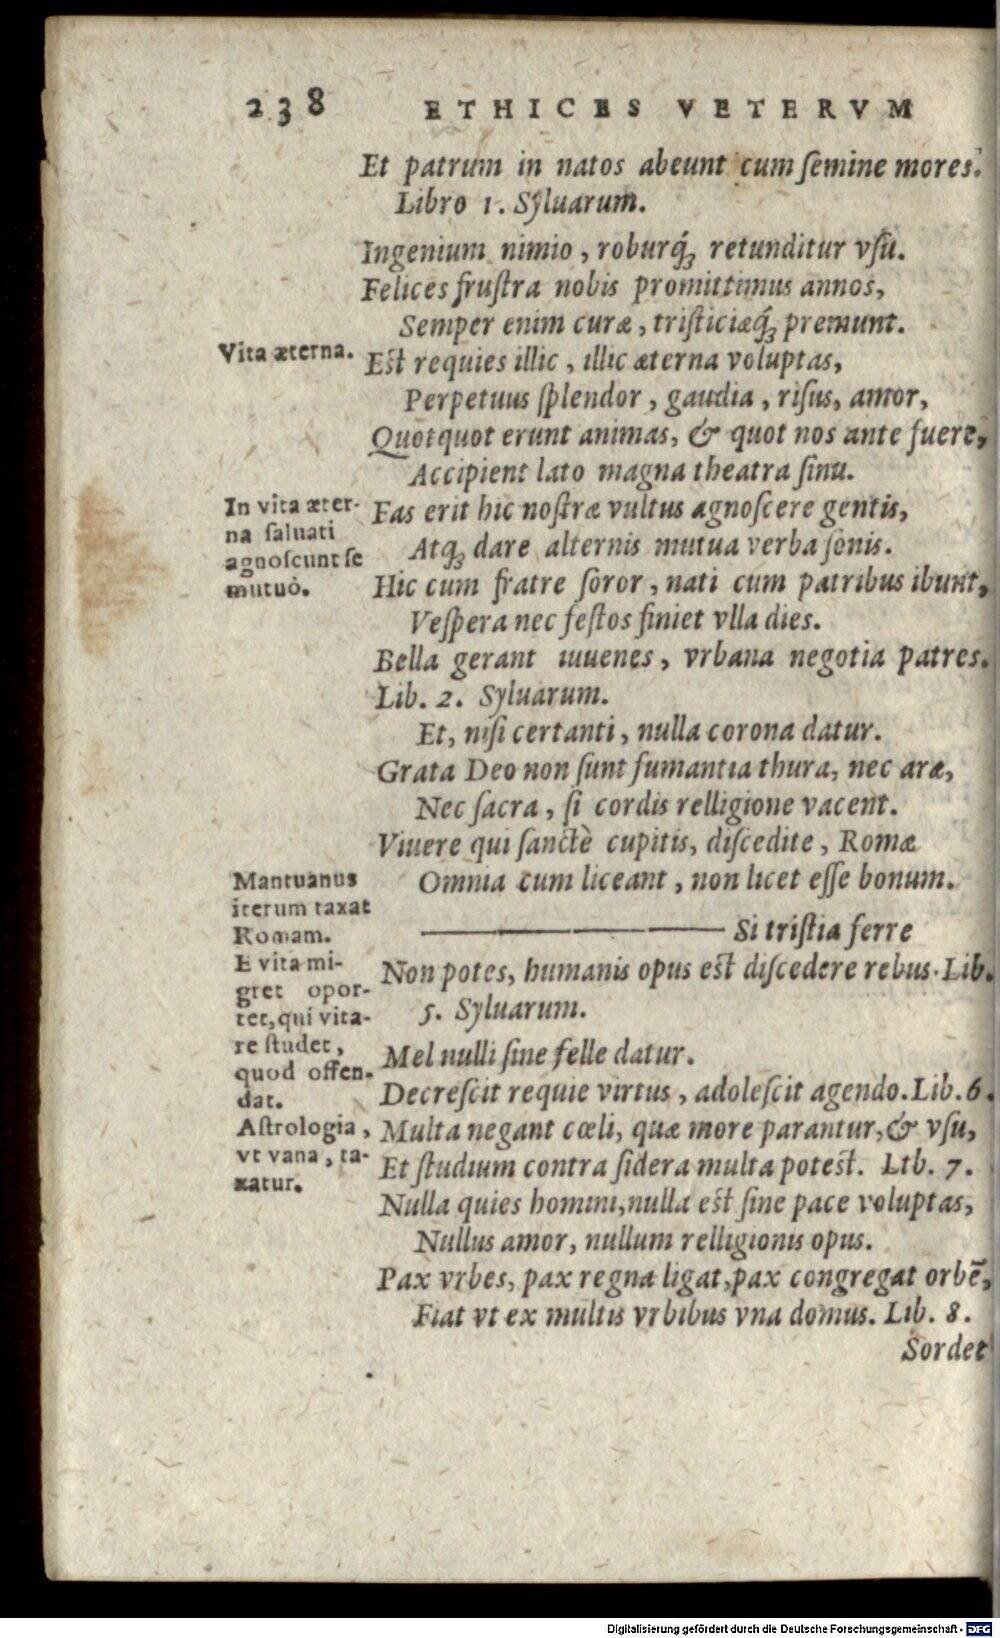 238 ETHICES VETERVM
Et patrum in natos abeunt cum ſemine mores.
Libro 1. Syluarum.
Ingenium nimio, roburq́ꝫ retunditur vſu.
Felices fruſtra nobis promittimus annos,
Semper enim curæ, triſticiæq́ꝫ premunt.
Vita æterna.
Est requies illic, illic æterna voluptas,
Perpetuus ſplendor, gaudia, riſus, amor,
Quotquot erunt animas, & quot nos ante fuere,
Accipient lato magna theatra ſinu.
In vita æter-
na ſaluati
agnoſcunt ſe
mutuò.
Fas erit hic noſtræ vultus agnoſcere gentis,
Atqꝫ dare alternis mutua verba ſonis.
Hic cum fratre ſoror, nati cum patribus ibunt,
Veſpera nec feſtos finiet vlla dies.
Bella gerant iuuenes, vrbana negotia patres.
Lib. 2. Syluarum.
Et, niſi certanti, nulla corona datur.
Grata Deo non ſunt fumantia thura, nec aræ,
Nec ſacra, ſi cordis relligione vacent.
Viuere qui ſanctè cupitis, diſcedite, Romæ
Omnia cum liceant, non licet eſſe bonum.
Mantuanus
iterum taxat
Romam.
E vita mi-
gret opor-
tet, qui vita-
re ſtudet,
quod offen-
dat.
Aſtrologia,
vt vana, ta-
xatur.
Si triſtia ferre
Non potes, humanis opus est diſcedere rebus. Lib.
5. Syluarum.
Mel nulli ſine felle datur.
Decreſcit requie virtus, adoleſcit agendo. Lib. 6.
Multa negant cœli, quæ more parantur, & vſu,
Et ſtudium contra ſidera multa potest. Lib. 7.
Nulla quies homini, nulla est ſine pace voluptas,
Nullus amor, nullum relligionis opus.
Pax vrbes, pax regna ligat, pax congregat orbē,
Fiat vt ex multis vrbibus vna domus. Lib. 8.
Sordet
Digitalisierung gefördert durch die Deutsche Forschungsgemeinschaft - DFG